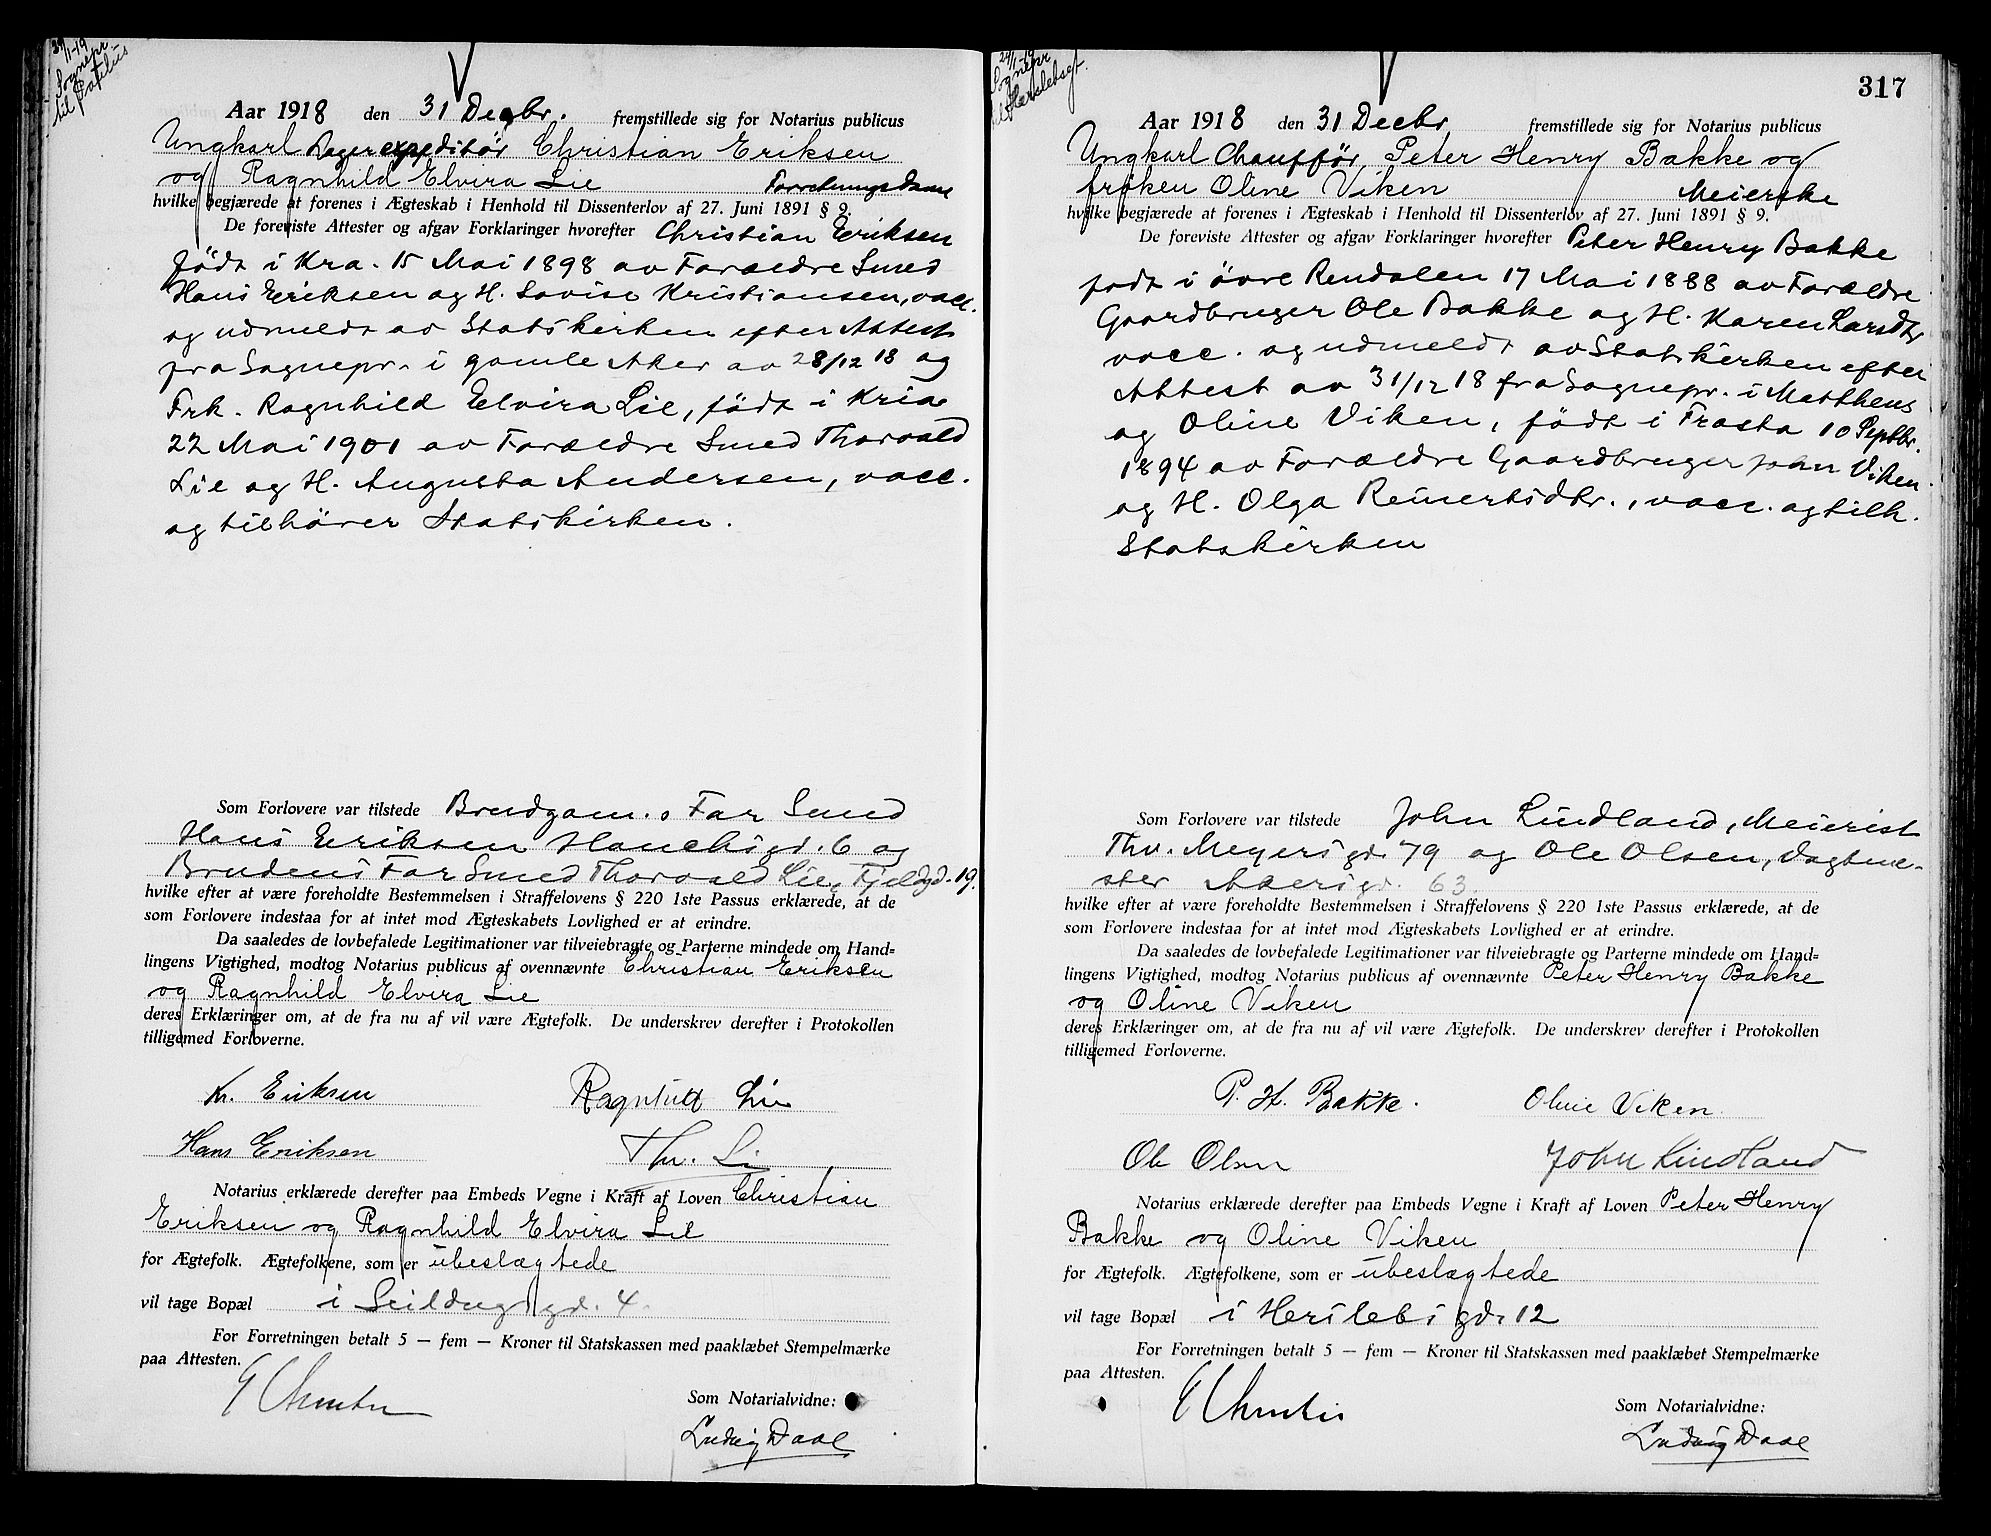 31/1-19
Sognepr.
til Paulus
Aar 1918 den 31 Decbr. fremstillede sig for Notarius publicus
Ungkarl Lagerexpeditör Christian Eriksen
og Ragnhild Elvira Lie Forretningsdame
hvilke begjærede at forenes i Ægteskab i Henhold til Dissenterlov af 27. Juni 1891 § 9.
De foreviste Attester og afgav Forklaringer hvorefter Christian Eriksen
födt i Kra. 15 Mai 1898 av Forældre Smed
Hans Eriksen og H. Lovise Kristiansen, vacc.
og udmeldt av Statskirken efter Attest
fra Sognepr. i gamle Aker av 28/12 18 og
Frk. Ragnhild Elvira Lie, födt i Kria
22 Mai 1901 av Forældre Smed Thorvald
Lie og H. Augusta Andersen, vacc.
og tilhörer Statskirken.
Som Forlovere var tilstede Brudgom.s Far Smed
Hans Eriksen Hauchsgd. 6 og
Brudens Far Smed Thorvald Lie, Fjeldgd. 19.
hvilke efter at være foreholdte Bestemmelsen i Straffelovens § 220 1ste Passus erklærede, at de
som Forlovere indestaa for at intet mod Ægteskabets Lovlighed er at erindre.
Da saaledes de lovbefalede Legitimationer var tilveiebragte og Parterne mindede om Hand-
lingens Vigtighed, modtog Notarius publicus af ovennævnte Christian Eriksen
og Ragnhild Elvira Lie
deres Erklæringer om, at de fra nu af vil være Ægtefolk. De underskrev derefter i Protokollen
tilligemed Forloverne.
Kr. Eriksen Ragnhild Lie
Hans Eriksen Thv. Li
Notarius erklærede derefter paa Embeds Vegne i Kraft af Loven Christian
Eriksen og Ragnhild Elvira Lie
for Ægtefolk. Ægtefolkene, som er ubeslægtede
vil tage Bopæl i Seildugsgd. 4.
For Forretningen betalt 5 — fem — Kroner til Statskassen med paaklæbet Stempelmærke
paa Attesten.
Som Notarialvidne:
Ludvig Daae
317
Sognepr
til Hersleb
Aar 1918 den 31 Decbr. fremstillede sig for Notarius publicus
Ungkarl Chaufför, Peter Henry Bakke og
fröken Oline Viken Meierske
hvilke begjærede at forenes i Ægteskab i Henhold til Dissenterlov af 27. Juni 1891 § 9.
De foreviste Attester og afgav Forklaringer hvorefter Peter Henry Bakke
födt i övre Rendalen 17 Mai 1888 av Forældre
Gaardbruger Ole Bakke og H. Karen Larsdtr.
vacc. og udmeldt av Statskirken efter
Attest av 31/12 18 fra Sognepr. i Mattheus
og Oline Viken, födt i Frosta 10 Septbr.
1894 av Forældre Gaardbruger John Viken
og H. Olga Reinertsdtr., vacc. og tilh.
Statskirken
Som Forlovere var tilstede John Lindland, Meierist
Thv. Meyersgd. 79 og Ole Olsen, Vagtme-
ster Akersgd. 63.
hvilke efter at være foreholdte Bestemmelsen i Straffelovens § 220 1ste Passus erklærede, at de
som Forlovere indestaa for at intet mod Ægteskabets Lovlighed er at erindre.
Da saaledes de lovbefalede Legitimationer var tilveiebragte og Parterne mindede om Hand-
lingens Vigtighed, modtog Notarius publicus af ovennævnte Peter Henry Bakke
og Oline Viken
deres Erklæringer om, at de fra nu af vil være Ægtefolk. De underskrev derefter i Protokollen
tilligemed Forloverne.
P. H. Bakke. Oline Viken.
Ole Olsen John Lindland
Notarius erklærede derefter paa Embeds Vegne i Kraft af Loven Peter Henry
Bakke og Oline Viken
for Ægtefolk. Ægtefolkene, som er ubeslægtede
vil tage Bopæl i Herslebsgd. 12
For Forretningen betalt 5 — fem — Kroner til Statskassen med paaklæbet Stempelmærke
paa Attesten.
Som Notarialvidne:
Ludvig Daae